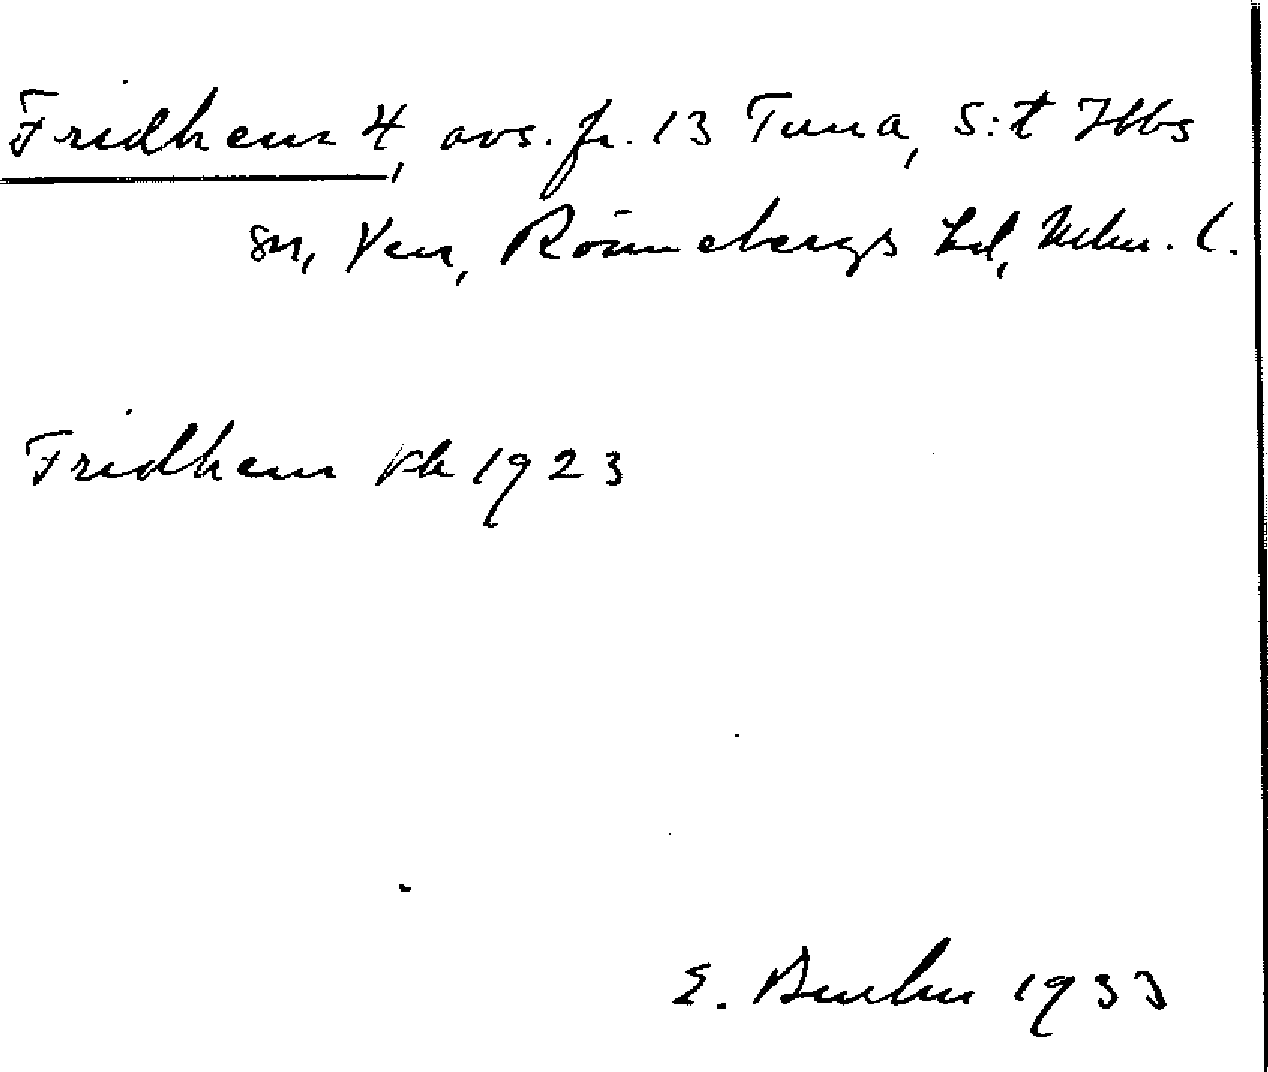 Fridhem 4, avs. fr. 13 Tuna, S:t Ibbs
sn, Ven, Rönnebergs hd, Mlm. l.
Fridhem Fb 1923
E. 1933